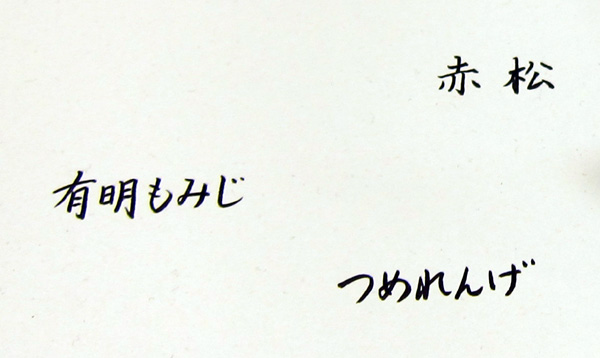 赤松
有明もみじ
つめれんげ